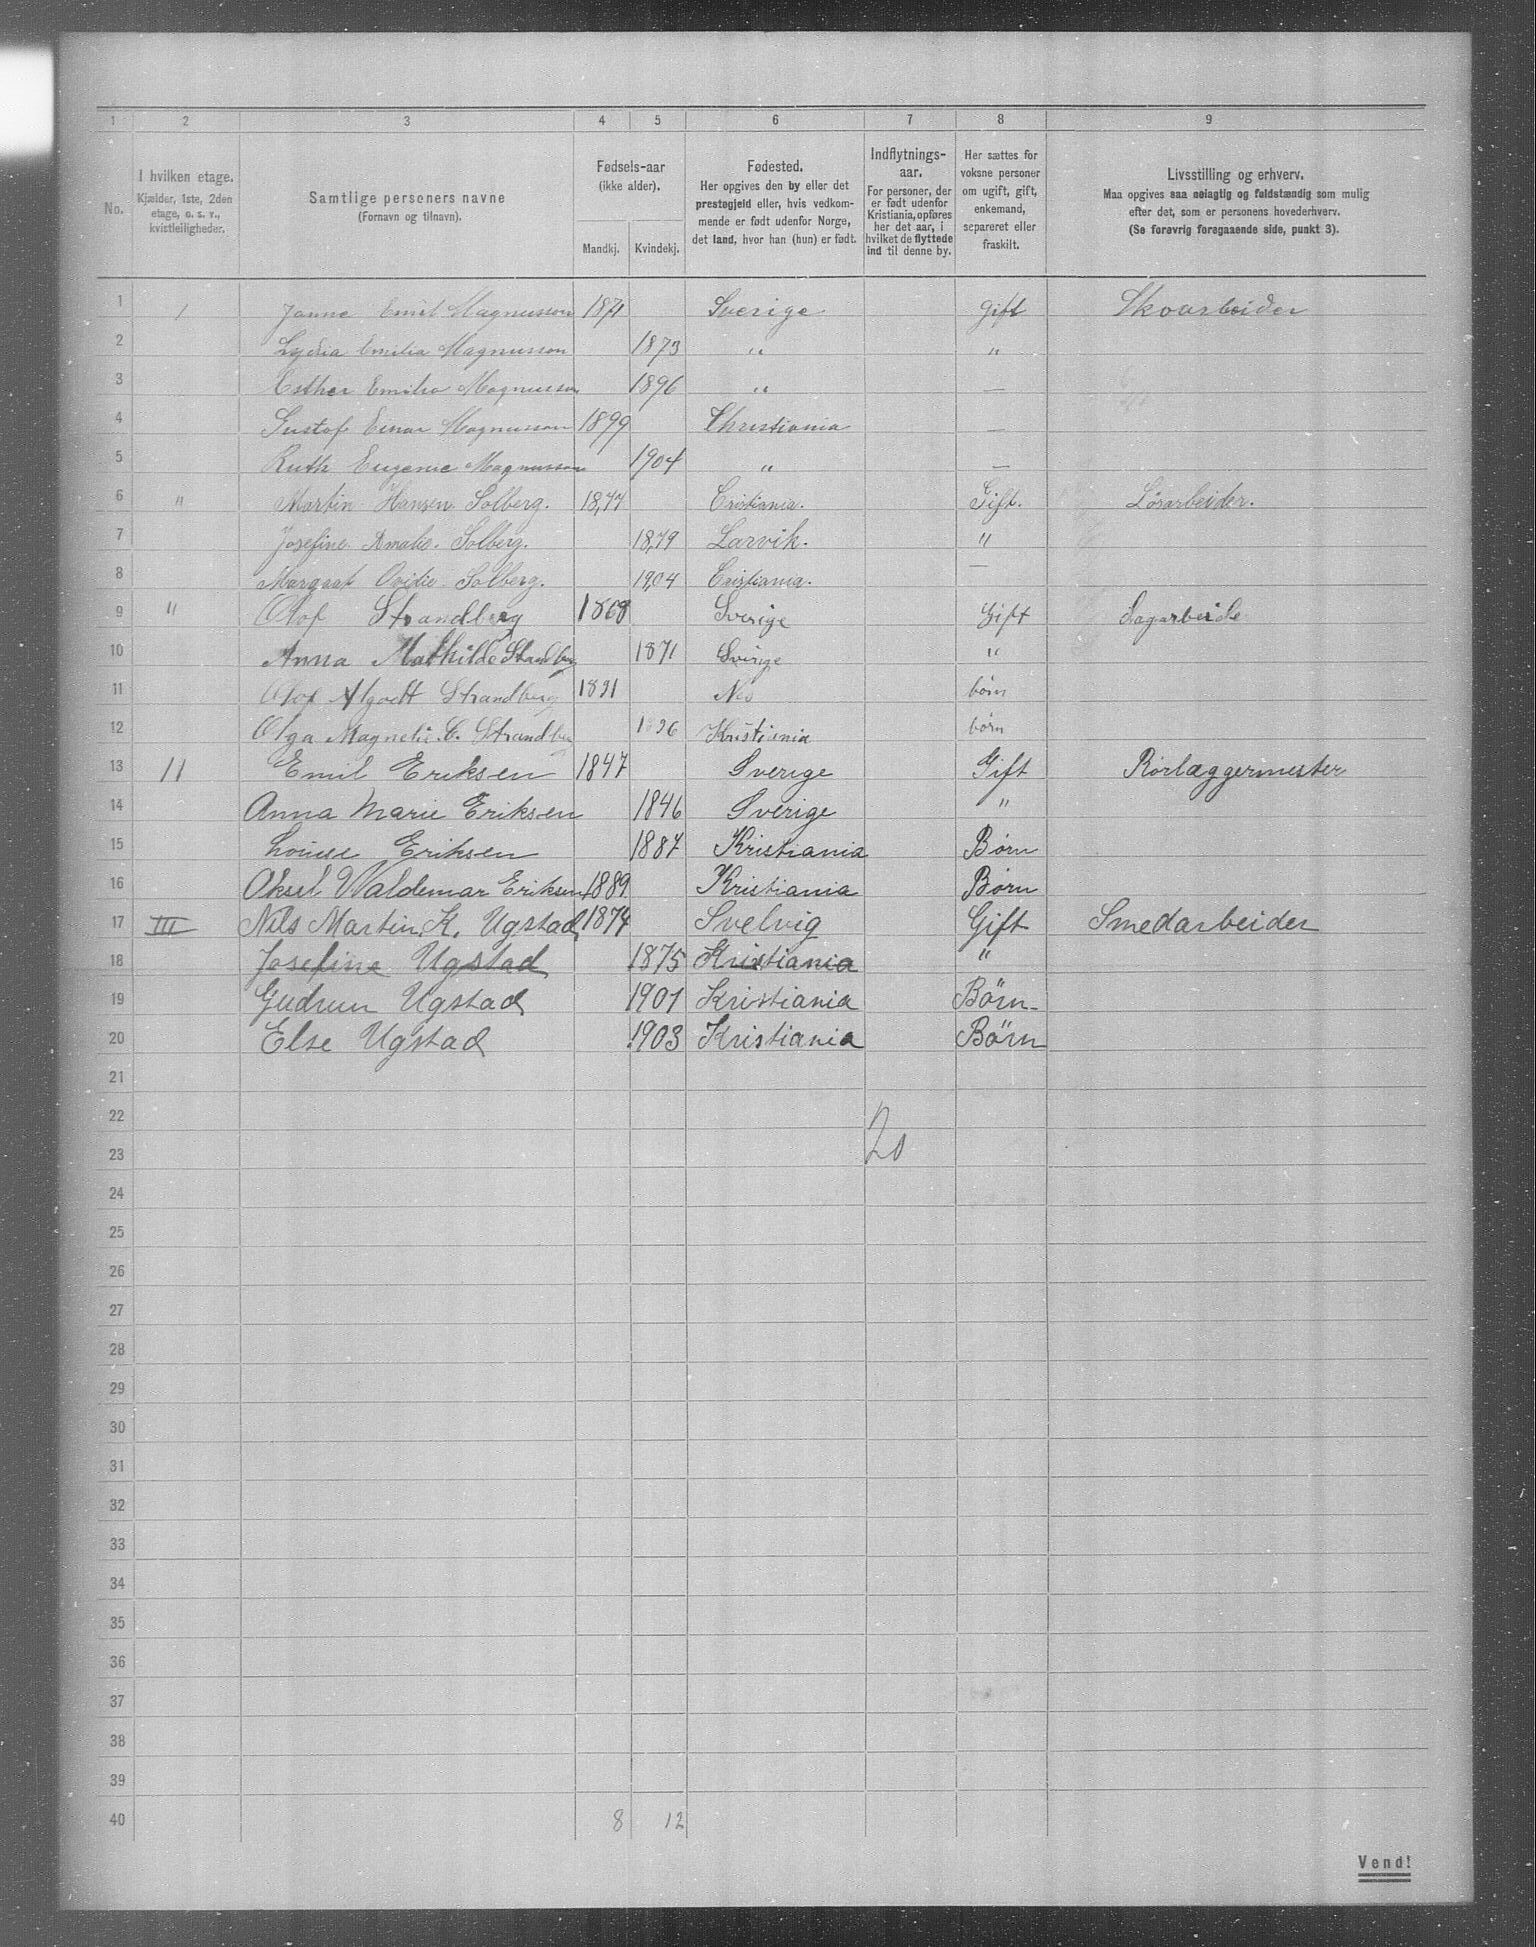 1 2 3 4 5 6 7 8 9
No.
I hvilken etage.
Kjælder, 1ste, 2den
etage, o. s. v.,
kvistleiligheder.
Samtlige personers navne
(Fornavn og tilnavn).
Fødsels-aar
(ikke alder).
Mandkj. Kvindekj.
Fødested.
Her opgives den by eller det
prestegjeld eller, hvis vedkom-
mende er født udenfor Norge,
det land, hvor han (hun) er født.
Indflytnings-
aar.
For personer, der
er født udenfor
Kristiania, opføres
her det aar, i
hvilket de flyttede
ind til denne by.
Her sættes for
voksne personer
om ugift, gift,
enkemand,
separeret eller
fraskilt.
Livsstilling og erhverv.
Maa opgives saa nøiagtig og fuldstændig som mulig
efter det, som er personens hovederhverv.
(Se forøvrig foregaaende side, punkt 3).
1 1 Janne Emil Magnusson 1871 Sverige Gift Skoarbeider
2 Lydia Emilia Magnusson 1873 " "
3 Esther Emilia Magnusson 1896 " —
4 Gustof Einar Magnusson 1899 Christiania —
5 Ruth Eugenie Magnusson 1904 " —
6 " Martin Hansen Solberg. 1877 Cristiania. Gift. Løsarbeider.
7 Josefine Amalie Solberg. 1879 Larvik. "
8 Margrat Ovidie Solberg. 1904 Cristiania. —
9 " Olof Strandberg 1868 Sverige Gift Sagarbeide
10 Anna Mathilde Strandberg 1871 Sverige "
11 Olof Algodt Strandberg 1891 Nes børn
12 Olga Magnelie C. Strandberg 1896 Kristiania børn
13 11 Emil Eriksen 1847 Sverige Gift Rørlæggermester
14 Anna Marie Eriksen 1846 Sverige "
15 Louise Eriksen 1887 Kristiania Børn
16 Aksel Waldemar Eriksen 1889 Kristiania Børn
17 III Nils Martin K. Ugstad 1874 Svelvig Gift Smedarbeider
18 Josefine Ugstad 1875 Kristiania "
19 Gudrun Ugstad 1901 Kristiania Børn
20 Else Ugstad 1903 Kristiania Børn
21
22
20
23
24
25
26
27
28
29
30
31
32
33
34
35
36
37
38
39
40 8 12
Vend!